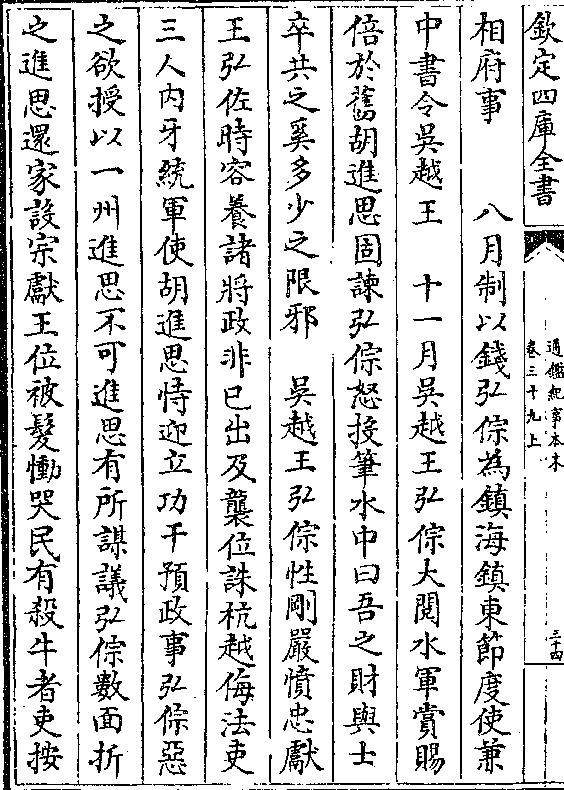 欽定四庫全書
通鑑紀事本末
卷三十九上
三十四
相府事　　八月制以錢弘倧為鎮海鎮東節度使兼
中書令吳越王　十一月吳越王弘倧大閱水軍賞賜
倍於舊胡進思固諫弘倧怒投筆水中曰吾之財與士
卒共之奚多少之限邪　　吳越王弘倧性剛嚴憤忠獻
王弘佐時容養諸將政非已出及襲位誅杭越侮法吏
三人內牙統軍使胡進思恃迎立功干預政事弘倧惡
之欲授以一州進思不可進思有所謀議弘倧數面折
之進思還家設宗獻王位被髮慟哭民有殺牛者吏按